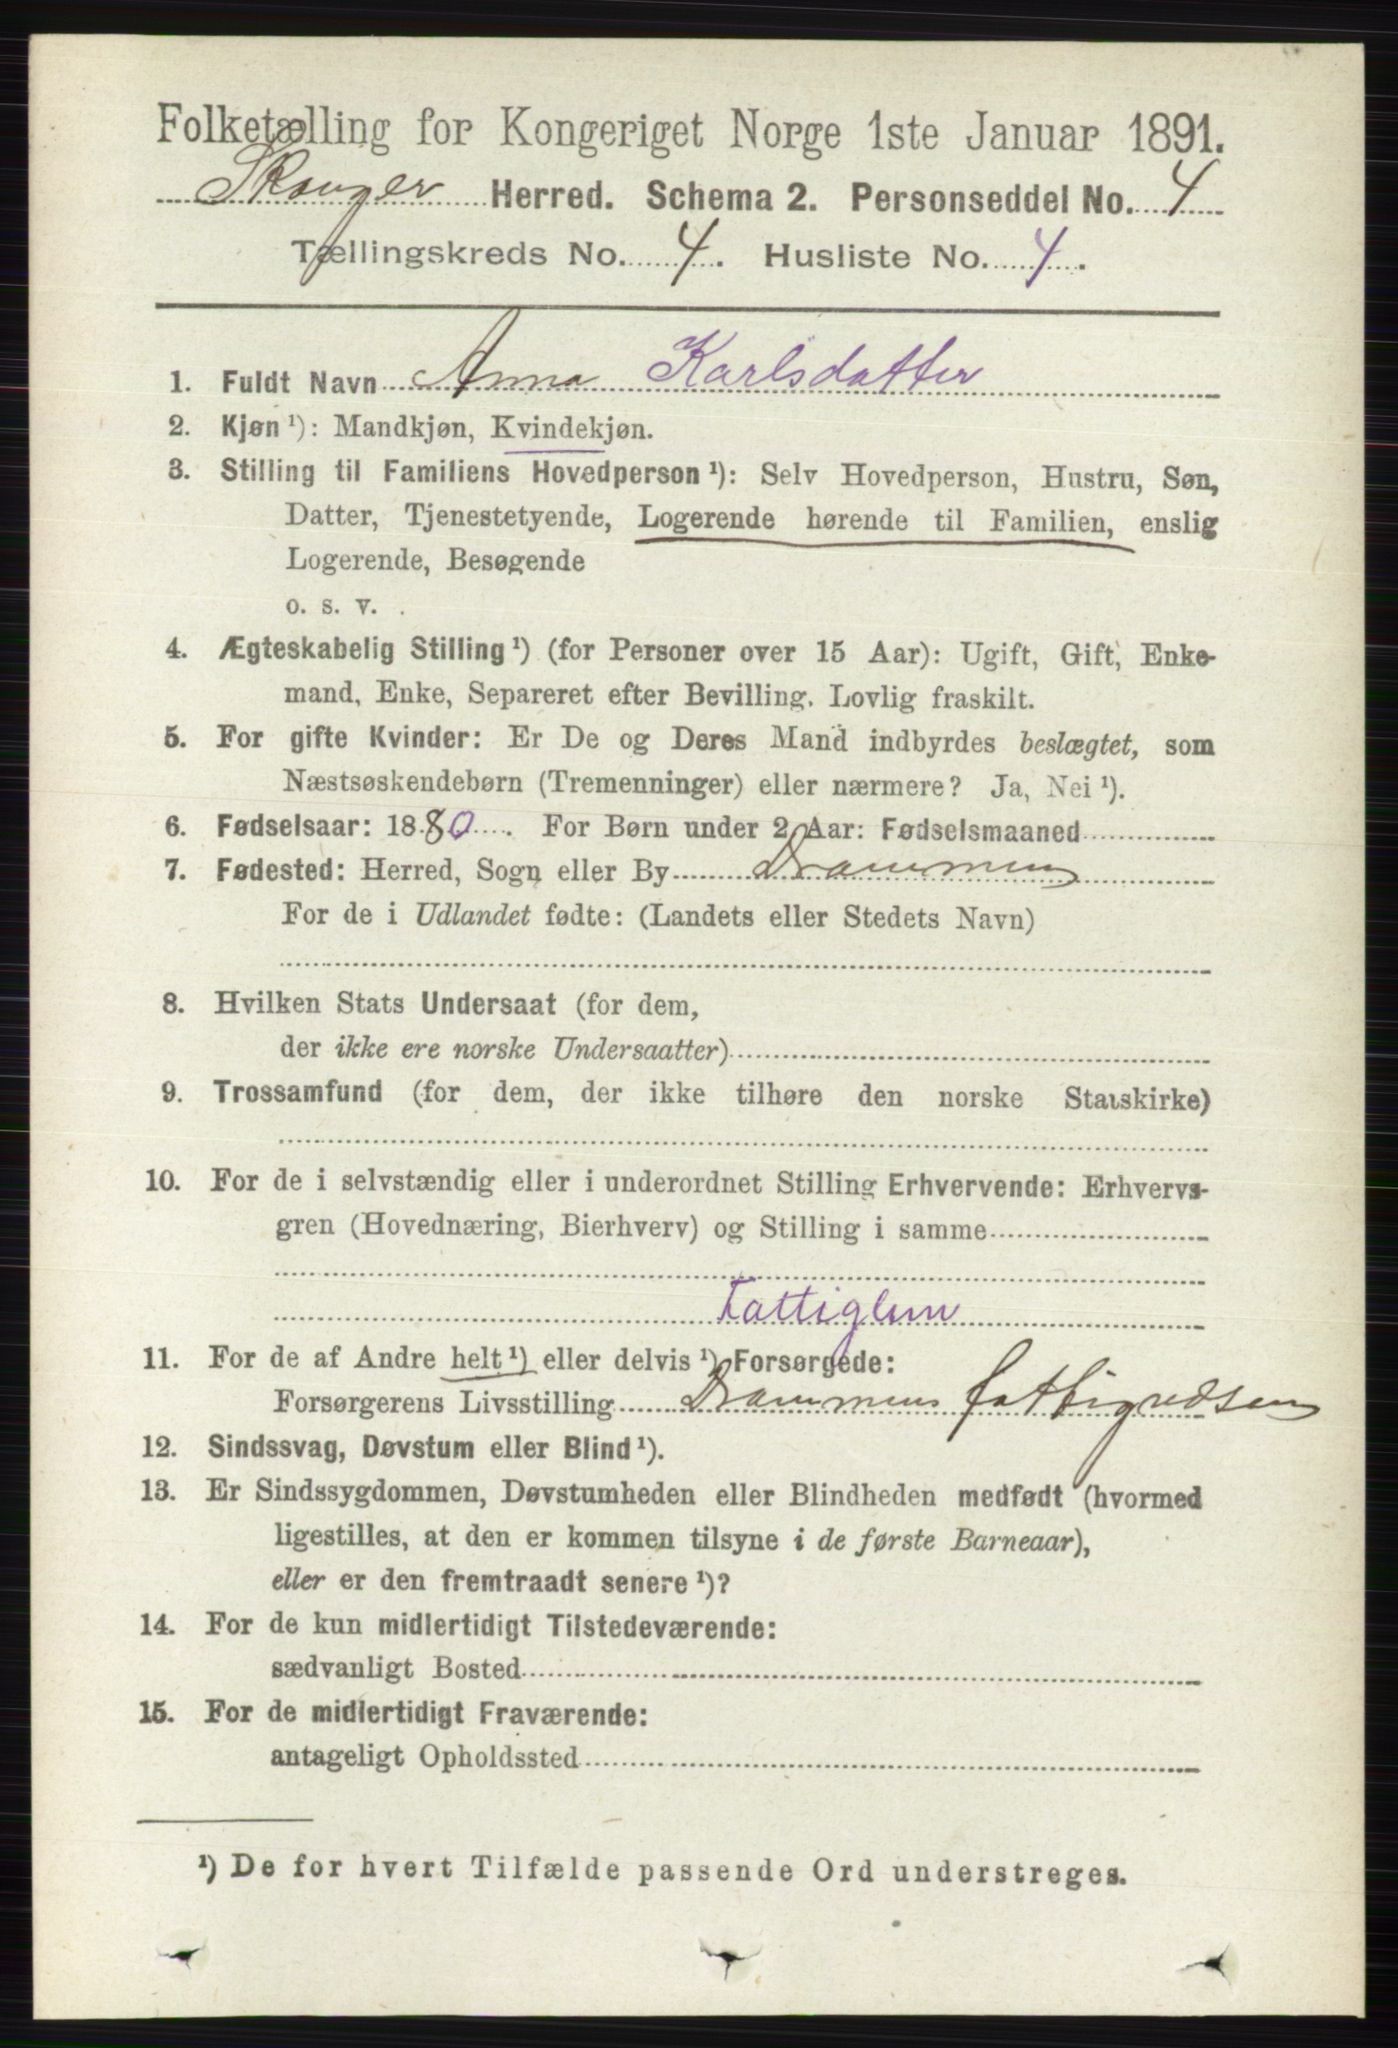 Folketælling for Kongeriget Norge 1ste Januar 1891.
Skouger Herred. Schema 2. Personseddel No. 4
Tællingskreds No. 4. Husliste No. 4.
1. Fuldt Navn Anna Karlsdatter
2. Kjøn ¹): Mandkjøn, Kvindekjøn.
3. Stilling til Familiens Hovedperson ¹): Selv Hovedperson, Hustru, Søn,
Datter, Tjenestetyende, Logerende hørende til Familien, enslig
Logerende, Besøgende
o. s. v.
4. Ægteskabelig Stilling ¹) (for Personer over 15 Aar): Ugift, Gift, Enke-
mand, Enke, Separeret efter Bevilling. Lovlig fraskilt.
5. For gifte Kvinder: Er De og Deres Mand indbyrdes beslægtet, som
Næstsøskendebørn (Tremenninger) eller nærmere? Ja, Nei ¹).
6. Fødselsaar: 1880. For Børn under 2 Aar: Fødselsmaaned
7. Fødested: Herred, Sogn eller By Drammen
For de i Udlandet fødte: (Landets eller Stedets Navn)
8. Hvilken Stats Undersaat (for dem,
der ikke ere norske Undersaatter)
9. Trossamfund (for dem, der ikke tilhøre den norske Statskirke)
10. For de i selvstændig eller i underordnet Stilling Erhvervende: Erhvervs-
gren (Hovednæring, Bierhverv) og Stilling i samme
Fattiglem
11. For de af Andre helt ¹) eller delvis ¹) Forsørgede:
Forsørgerens Livsstilling Drammens fattigvæsen
12. Sindssvag, Døvstum eller Blind ¹).
13. Er Sindssygdommen, Døvstumheden eller Blindheden medfødt (hvormed
ligestilles, at den er kommen tilsyne i de første Barneaar),
eller er den fremtraadt senere ¹)?
14. For de kun midlertidigt Tilstedeværende:
sædvanligt Bosted
15. For de midlertidigt Fraværende:
antageligt Opholdssted
¹) De for hvert Tilfælde passende Ord understreges.